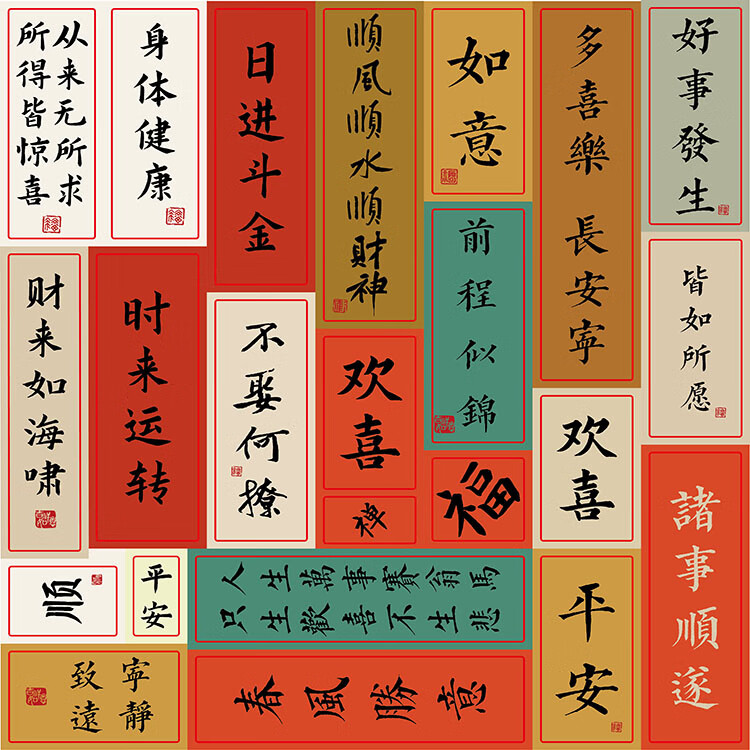 从来无所求
所得皆惊喜
身体健康
日进斗金
順風順水順財神
如意
多喜樂 長安寧
好事發生
财来如海啸
时来运转
不娶何撩
欢喜
禅
前程似錦
福
欢喜
皆如所愿
顺
平安
人生萬事賽翁馬
只生歡喜不生悲
平安
諸事順遂
寧靜
致遠
春風勝意